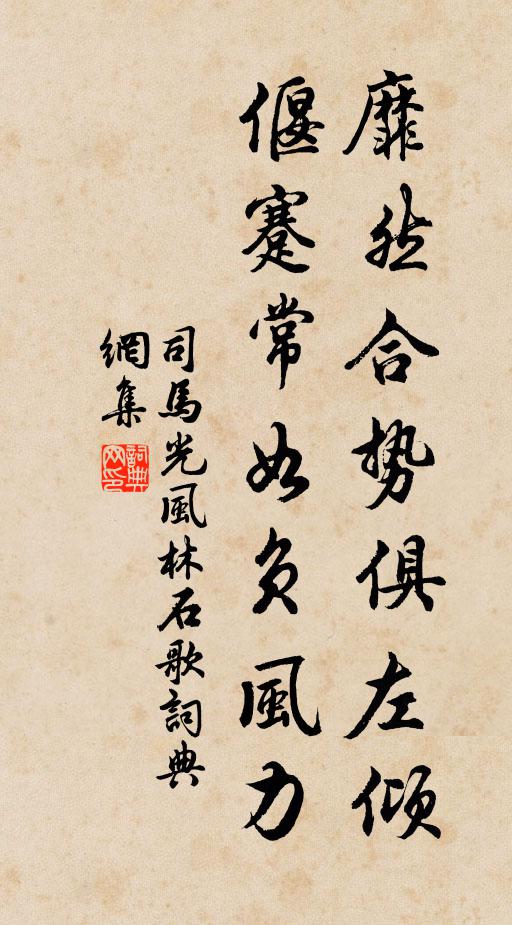 靡然合势俱左倾
偃蹇常如负風力
司馬光風林石歌詞典
網集
詞典
网印